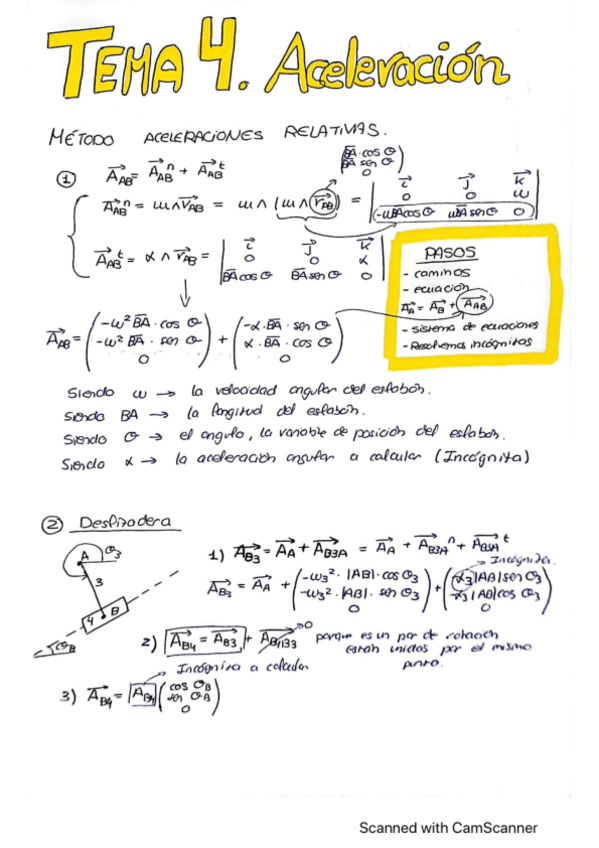 TEMA 4. Aceleración
MÉTODO ACELERACIONES RELATIVAS.
① A⃗AB = A⃗ABⁿ + A⃗ABᵗ
(B̅A̅·cos θ
B̅A̅ sen θ
0)
A⃗ABⁿ = ω∧v⃗AB = ω∧(ω∧r⃗AB) = | i⃗ j⃗ k⃗
0 0 ω
-ωB̅A̅cosθ ωB̅A̅senθ 0 |
A⃗ABᵗ = α∧r⃗AB = | i⃗ j⃗ k⃗
0 0 α
B̅A̅cosθ B̅A̅senθ 0 |
PASOS
- caminos
- ecuación
A⃗A = A⃗B + A⃗AB
- sistema de ecuaciones
- Resolvemos incógnitas
A⃗AB = (-ω² B̅A̅·cos θ
-ω² B̅A̅·sen θ
0) + (-α·B̅A̅·sen θ
α·B̅A̅·cos θ
0)
Siendo ω → la velocidad angular del eslabón.
Siendo BA → la longitud del eslabón.
Siendo θ → el angulo, la variable de posición del eslabón.
Siendo α → la aceleración angular a calcular (Incógnita)
② Deslizadera
A θ3
3
4 B
θB
1) A⃗B3 = A⃗A + A⃗B3A = A⃗A + A⃗B3Aⁿ + A⃗B3Aᵗ
Incógnita
A⃗B3 = A⃗A + (-ω3²·|AB|·cos θ3
-ω3²·|AB|·sen θ3
0) + (α3|AB|sen θ3
-α3|AB|cos θ3
0)
2) A⃗B4 = A⃗B3 + A⃗B4B3 → 0 porque es un par de rotación
están unidos por el mismo
punto.
Incógnita a calcular
3) A⃗B4 = AB4 (cos θB
sen θB
0)
Scanned with CamScanner